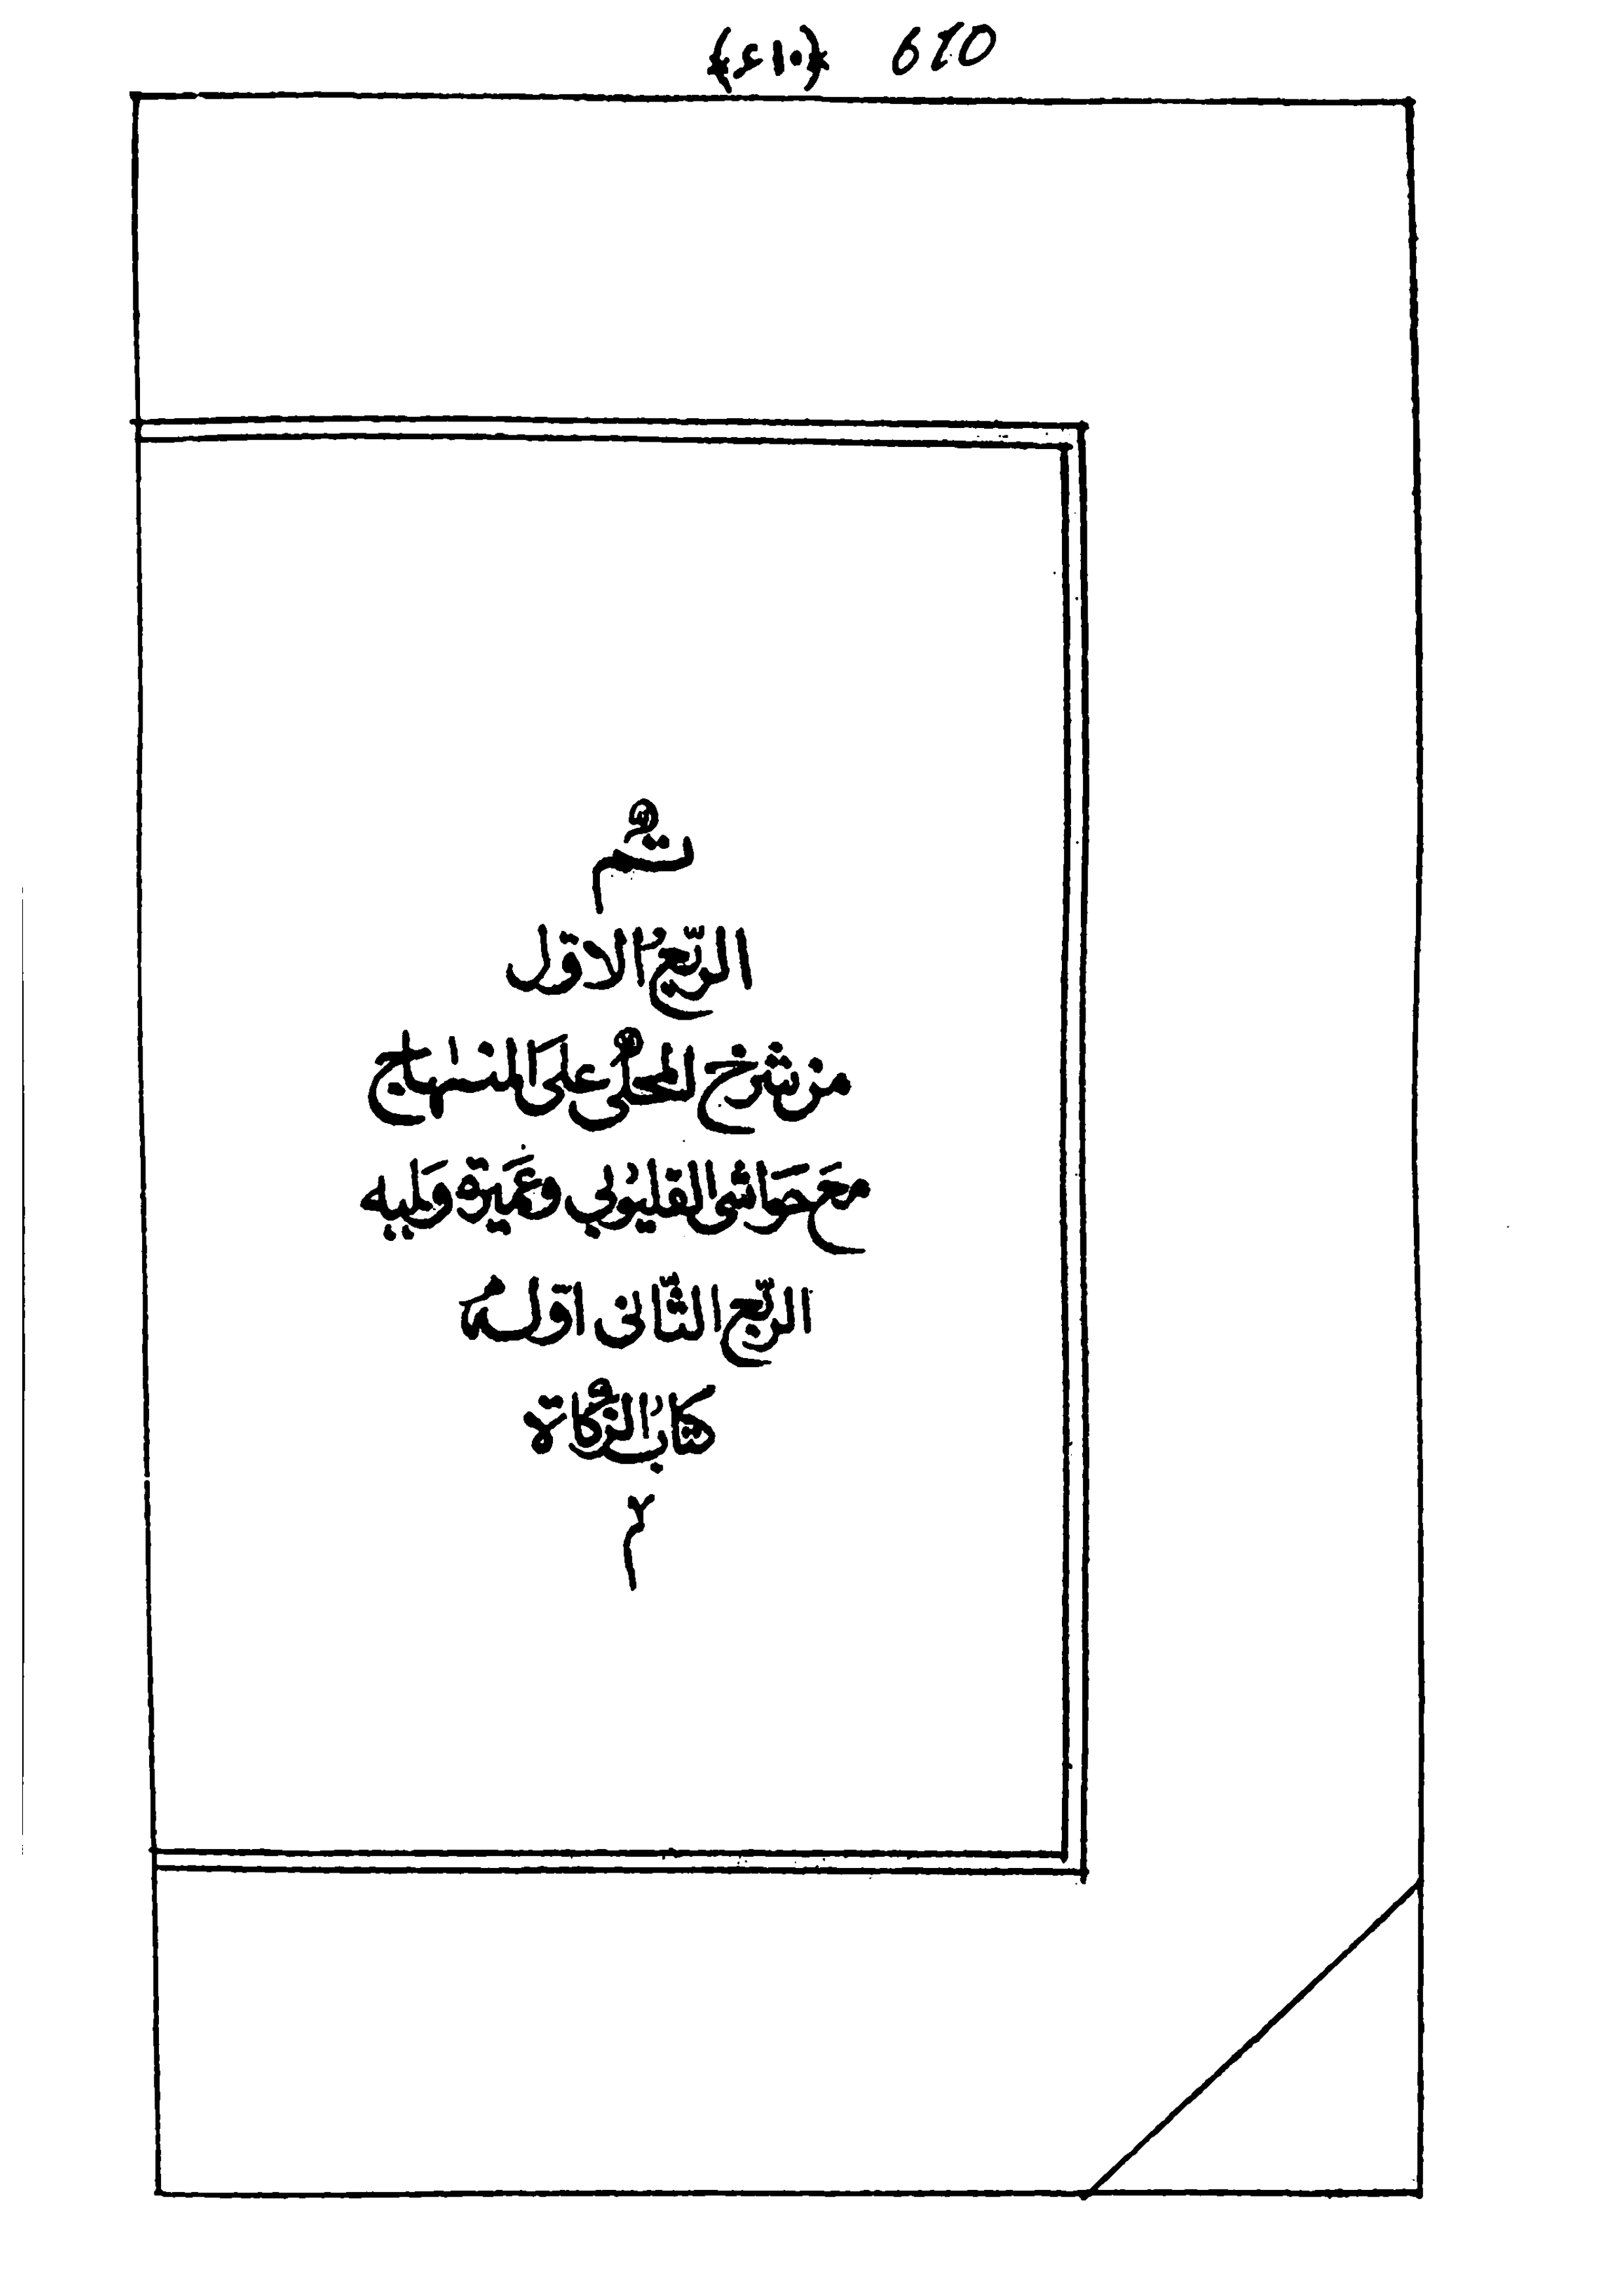 ﴿٦١٠﴾ 610
تم
الربع الاول
من شرح المحلي على المنهاج
مع حواشى القليوبي وعميرة ويليه
الربع الثانى اوله
كتاب الزكاة
م